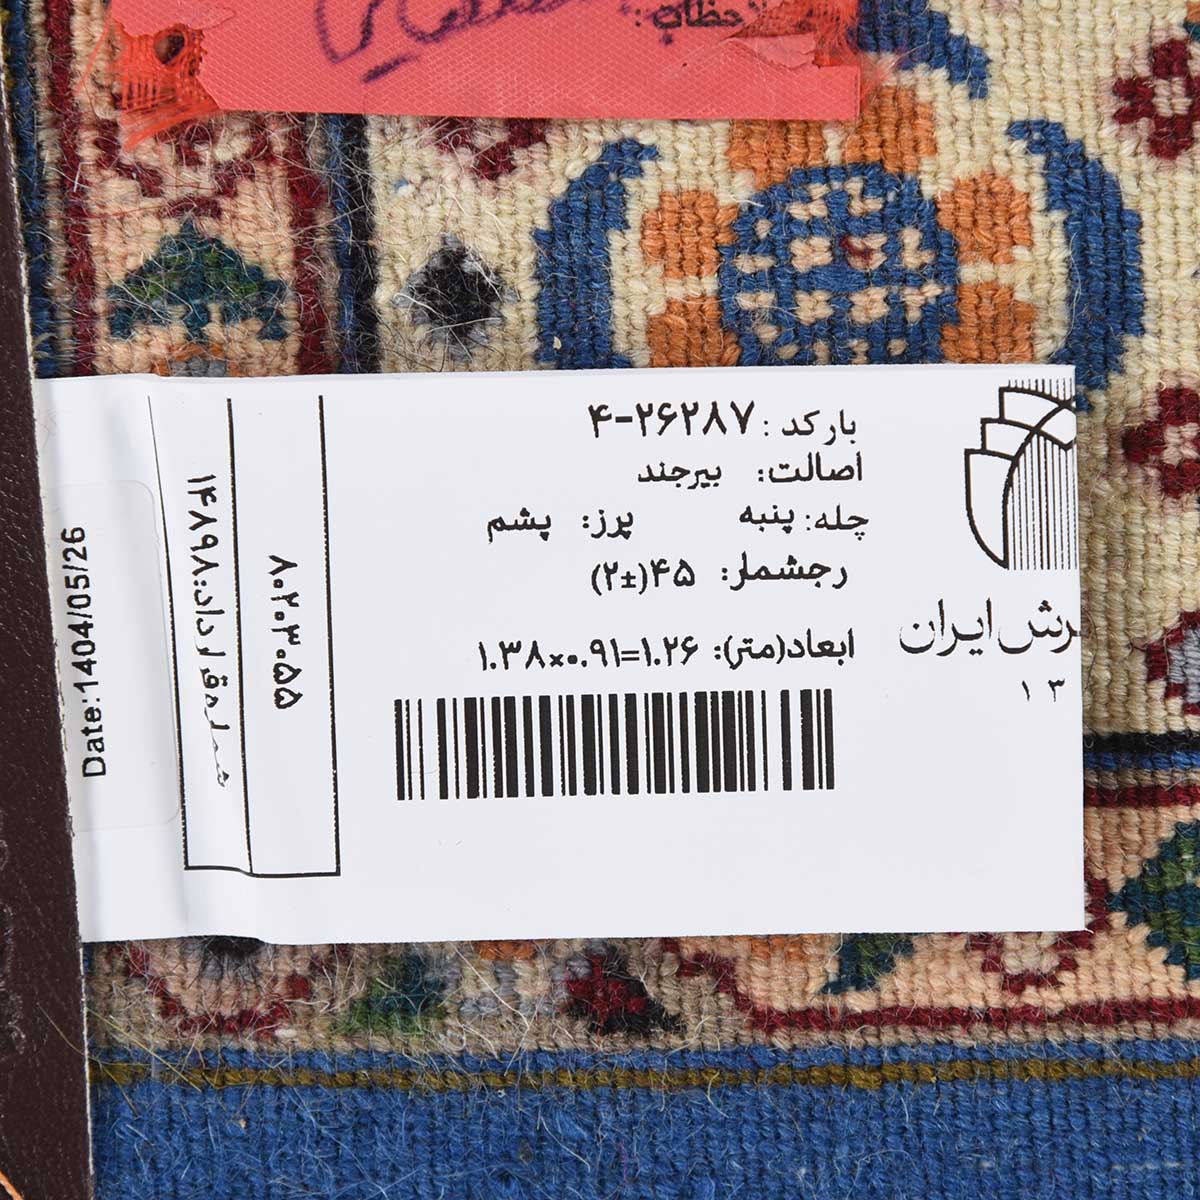 ملاحظات:
بارکد: ۲۶۲۸۷-۴
اصالت: بیرجند
چله: پنبه پرز: پشم
رجشمار: ۴۵(±۲)
ابعاد(متر): ۱.۳۸×۰.۹۱=۱.۲۶
فرش ایران
۱۳
۸۰۲۳۰۵۵
شماره قرارداد:۱۴۸۹۸
Date:1404/05/26